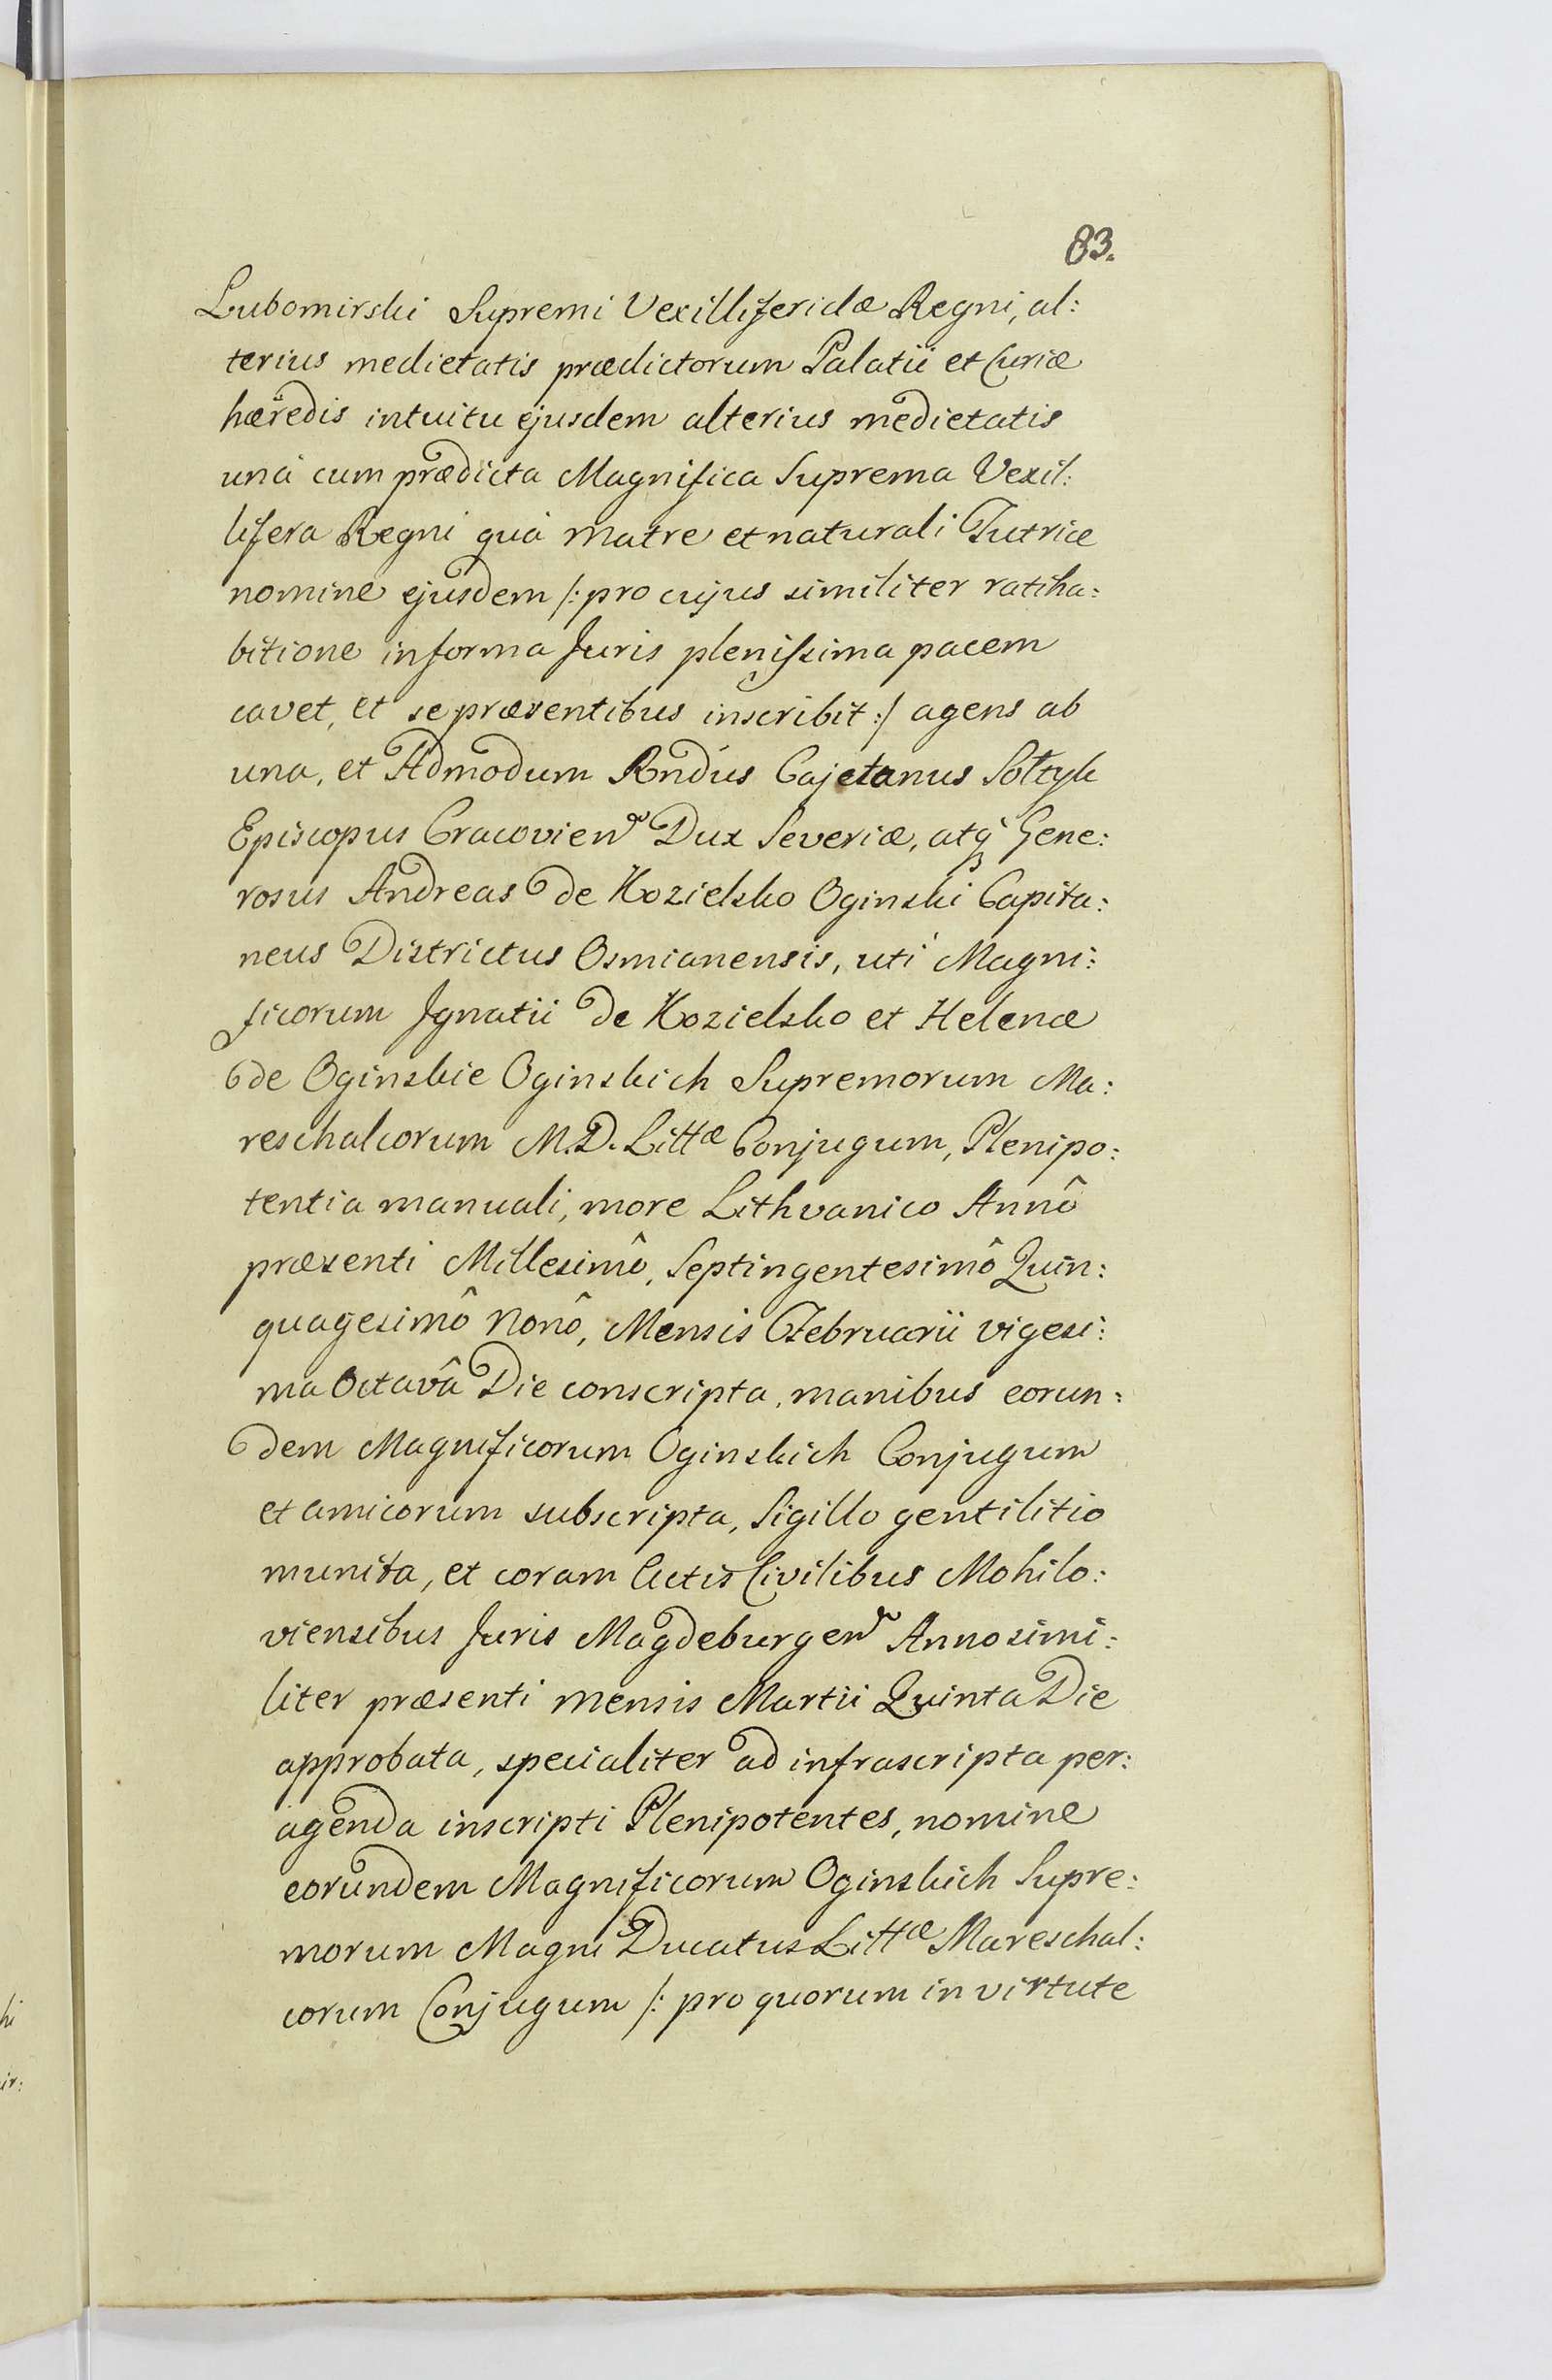 83.
Lubomirski Supremi Vexilliferidæ Regni, al:
terius medietatis prædictorum Palatii et Curiæ
hæredis intuitu ejusdem alterius medietatis
unà cum prædicta Magnifica Suprema Vexil:
lifera Regni quà Matre et naturali Tutrice
nomine ejusdem /: pro cujus similiter ratiha:
bitione in forma Juris plenissima pacem
cavet, et se præsentibus inscribit :/ agens ab
una, et Admodum Rndus Cajetanus Sołtyk
Episcopus Cracovien Dux Severiæ, atq Gene:
rosus Andreas de Kozielsko Oginski Capita:
neus Districtus Osmianensis, uti Magni:
ficorum Ignatii de Kozielsko et Helenæ
de Oginskie Oginskich Supremorum Ma:
reschalcorum M. D. Littæ Conjugum, Plenipo:
tentia manuali, more Lithvanico Annô
præsenti Millesimô, Septingentesimô Quin:
quagesimô Nonô, Mensis Februarii vigesi:
ma Octavâ Die conscripta, manibus eorun:
dem Magnificorum Oginskich Conjugum
et amicorum subscripta, Sigillo gentilitio
munita, et coram Actis Civilibus Mohilo:
viensibus Juris Magdeburgen Anno simi:
liter præsenti mensis Martii Quinta Die
approbata, specialiter ad infrascripta per:
agenda inscripti Plenipotentes, nomine
eorundem Magnificorum Oginskich Supre:
morum Magni Ducatus Littæ Mareschal:
corum Conjugum /: pro quorum in virtute
hi
ir: